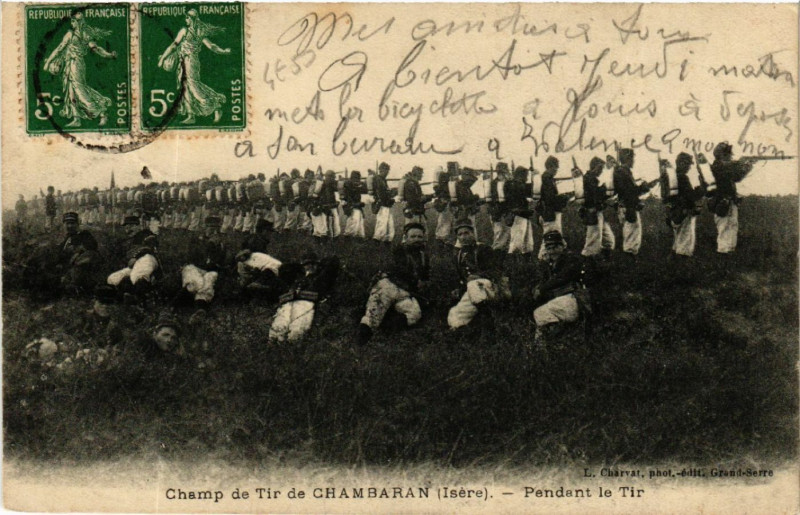 RÉPUBLIQUE FRANÇAISE
5c
POSTES
RÉPUBLIQUE FRANÇAISE
5c
POSTES
Mes
A bientot Jeudi matin
mets la bicyclette a Louis à
a son bureau a Valence a mon nom
L. Charvat, phot.-édit. Grand-Serre
Champ de Tir de CHAMBARAN (Isère). — Pendant le Tir